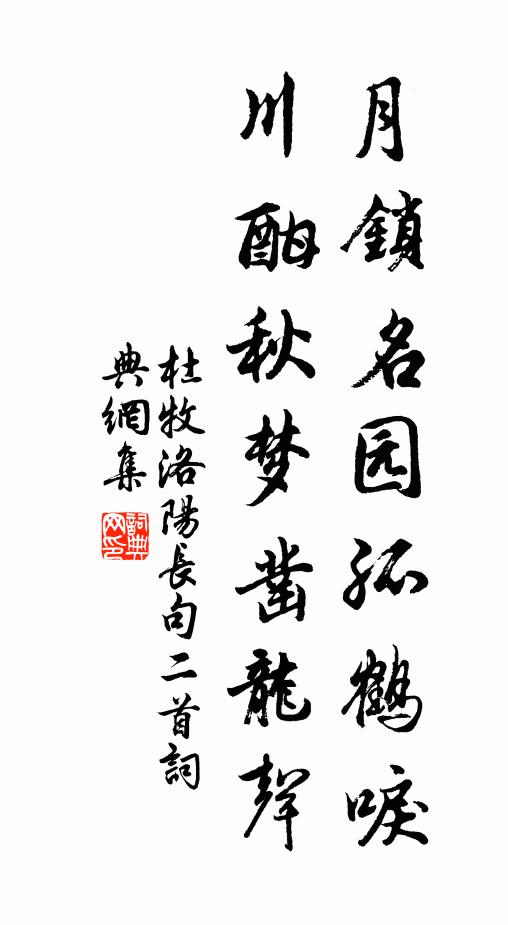 月鎖名园孤鶴唳
川酣秋梦凿龍聲
杜牧洛陽長句二首詞
典網集
詞典
网印